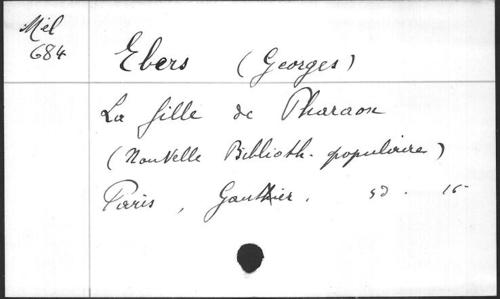 Mél
684
Ebers (Georges)
La fille de Pharaon
(Nouvelle Biblioth. populaire)
Paris, Gauthier, sd. in